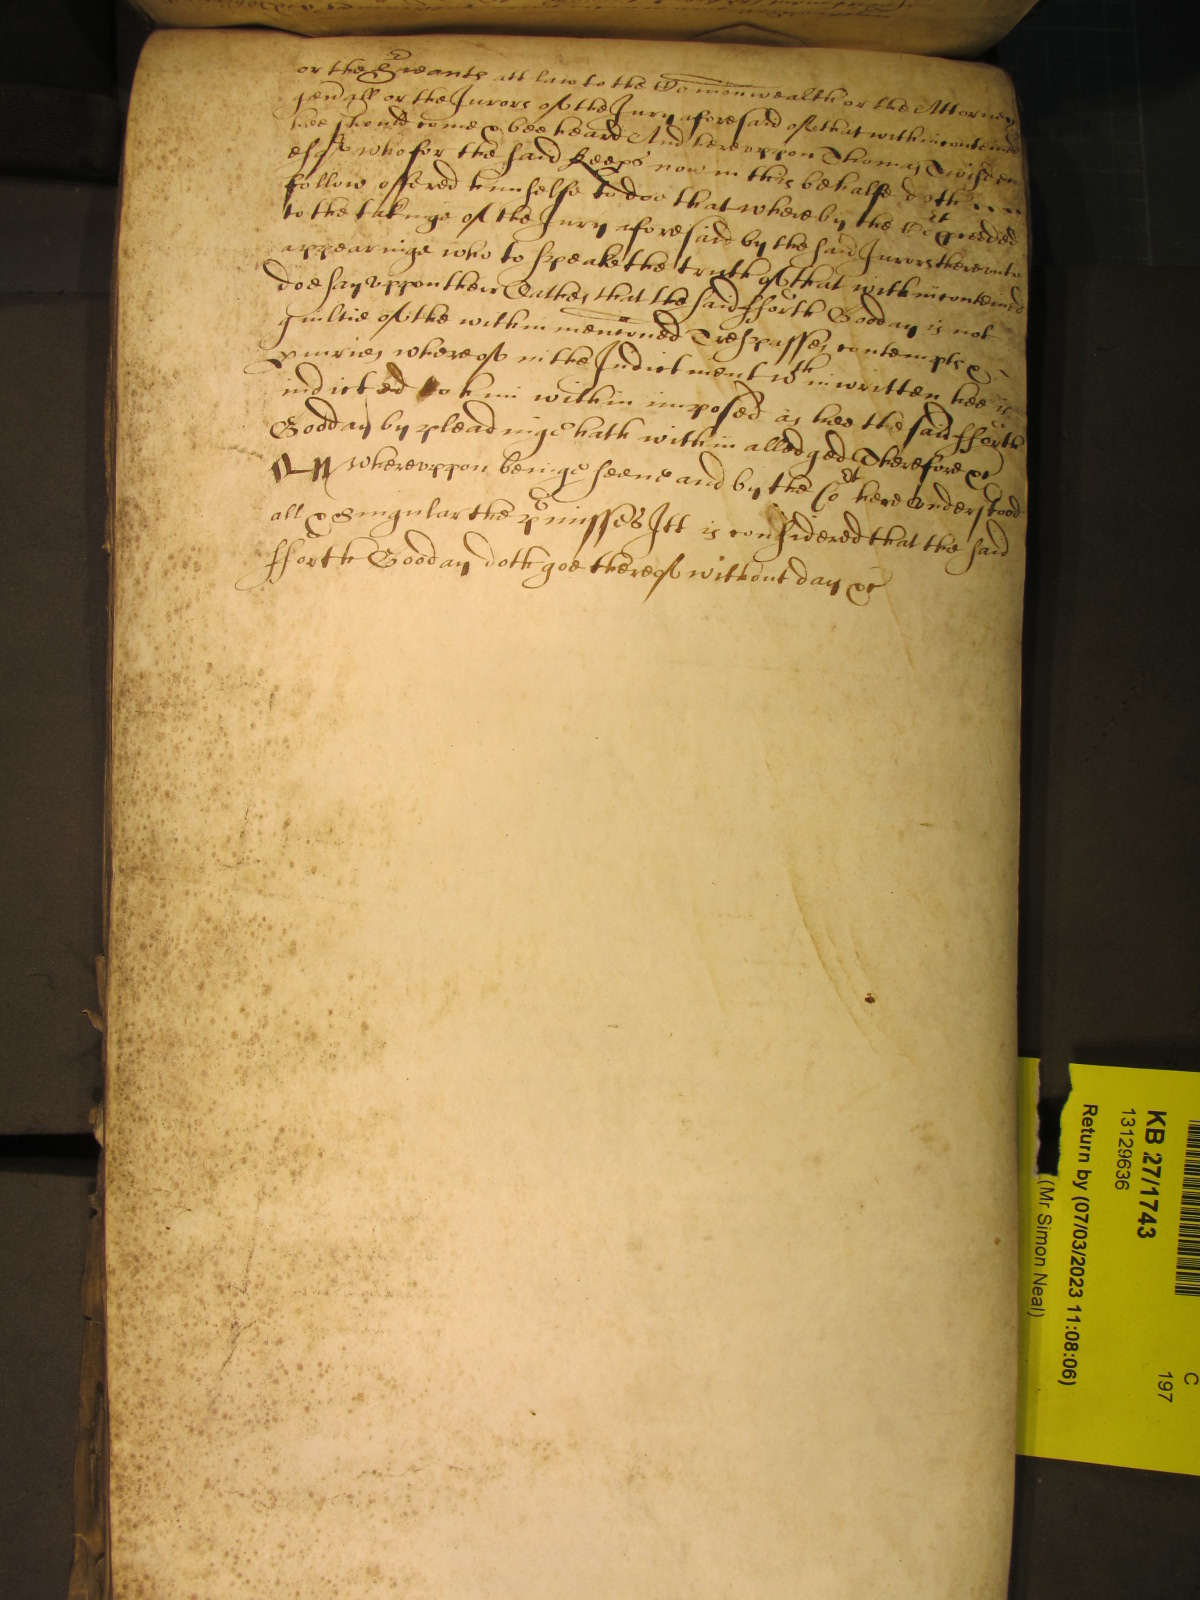 or the Sieants att law to the Comonwealth or the Attorney
genall or the Jurors of the Jury aforesaid of that within conteined
hee should come & bee heard And hereuppon Thomas Twisden
esqr who for the said Keeps now in this behalfe doth
follow offered himselfe to doe that whereby the Cort proceded
to the takinge of the Jury aforesaid by the said Jurors thereunto
appearinge who to speake the truth of that within conteined
doe say uppon their Oathes that the said fforth Gooday is not
guiltie of the within menconed Trespasses contempts &
iniuries whereof in the Indictment wthin written hee is
indicted to him within imposed as hee the said fforth
Gooday by pleadinge hath within alledged Therefore &c
Whereuppon beinge seene and by the Cort here understood
all & singular the pmisses Itt is considered that the said
fforth Gooday doth goe thereof without day &c
KB 27/1743
13129636
Return by (07/03/2023 11:08:06)
(Mr Simon Neal)
C
197